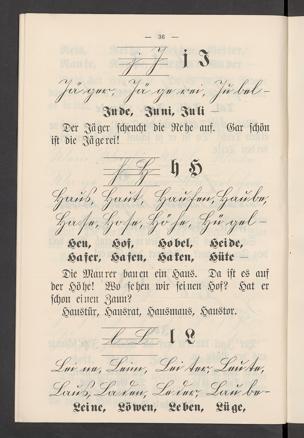 — 36 —
j J j J
Jäger, Jägerei, Jubel –
Jude, Juni, Juli –
Der Jäger scheucht die Rehe auf. Gar schön
ist die Jägerei!
h H h H
Haus, Haut, Haufen, Haube,
Hase, Hose, Höfe, Hügel –
Heu, Hof, Hobel, Heide,
Hafer, Hafen, Haken, Hüte –
Die Maurer bauen ein Haus. Da ist es auf
der Höhe! Wo sehen wir seinen Hof? Hat er
schon einen Zaun?
Haustür, Hausrat, Hausmaus, Haustor.
l L l L
Leine, Leim, Leiter, Leute,
Laus, Laden, Leder, Laube –
Leine, Löwen, Leben, Lüge,